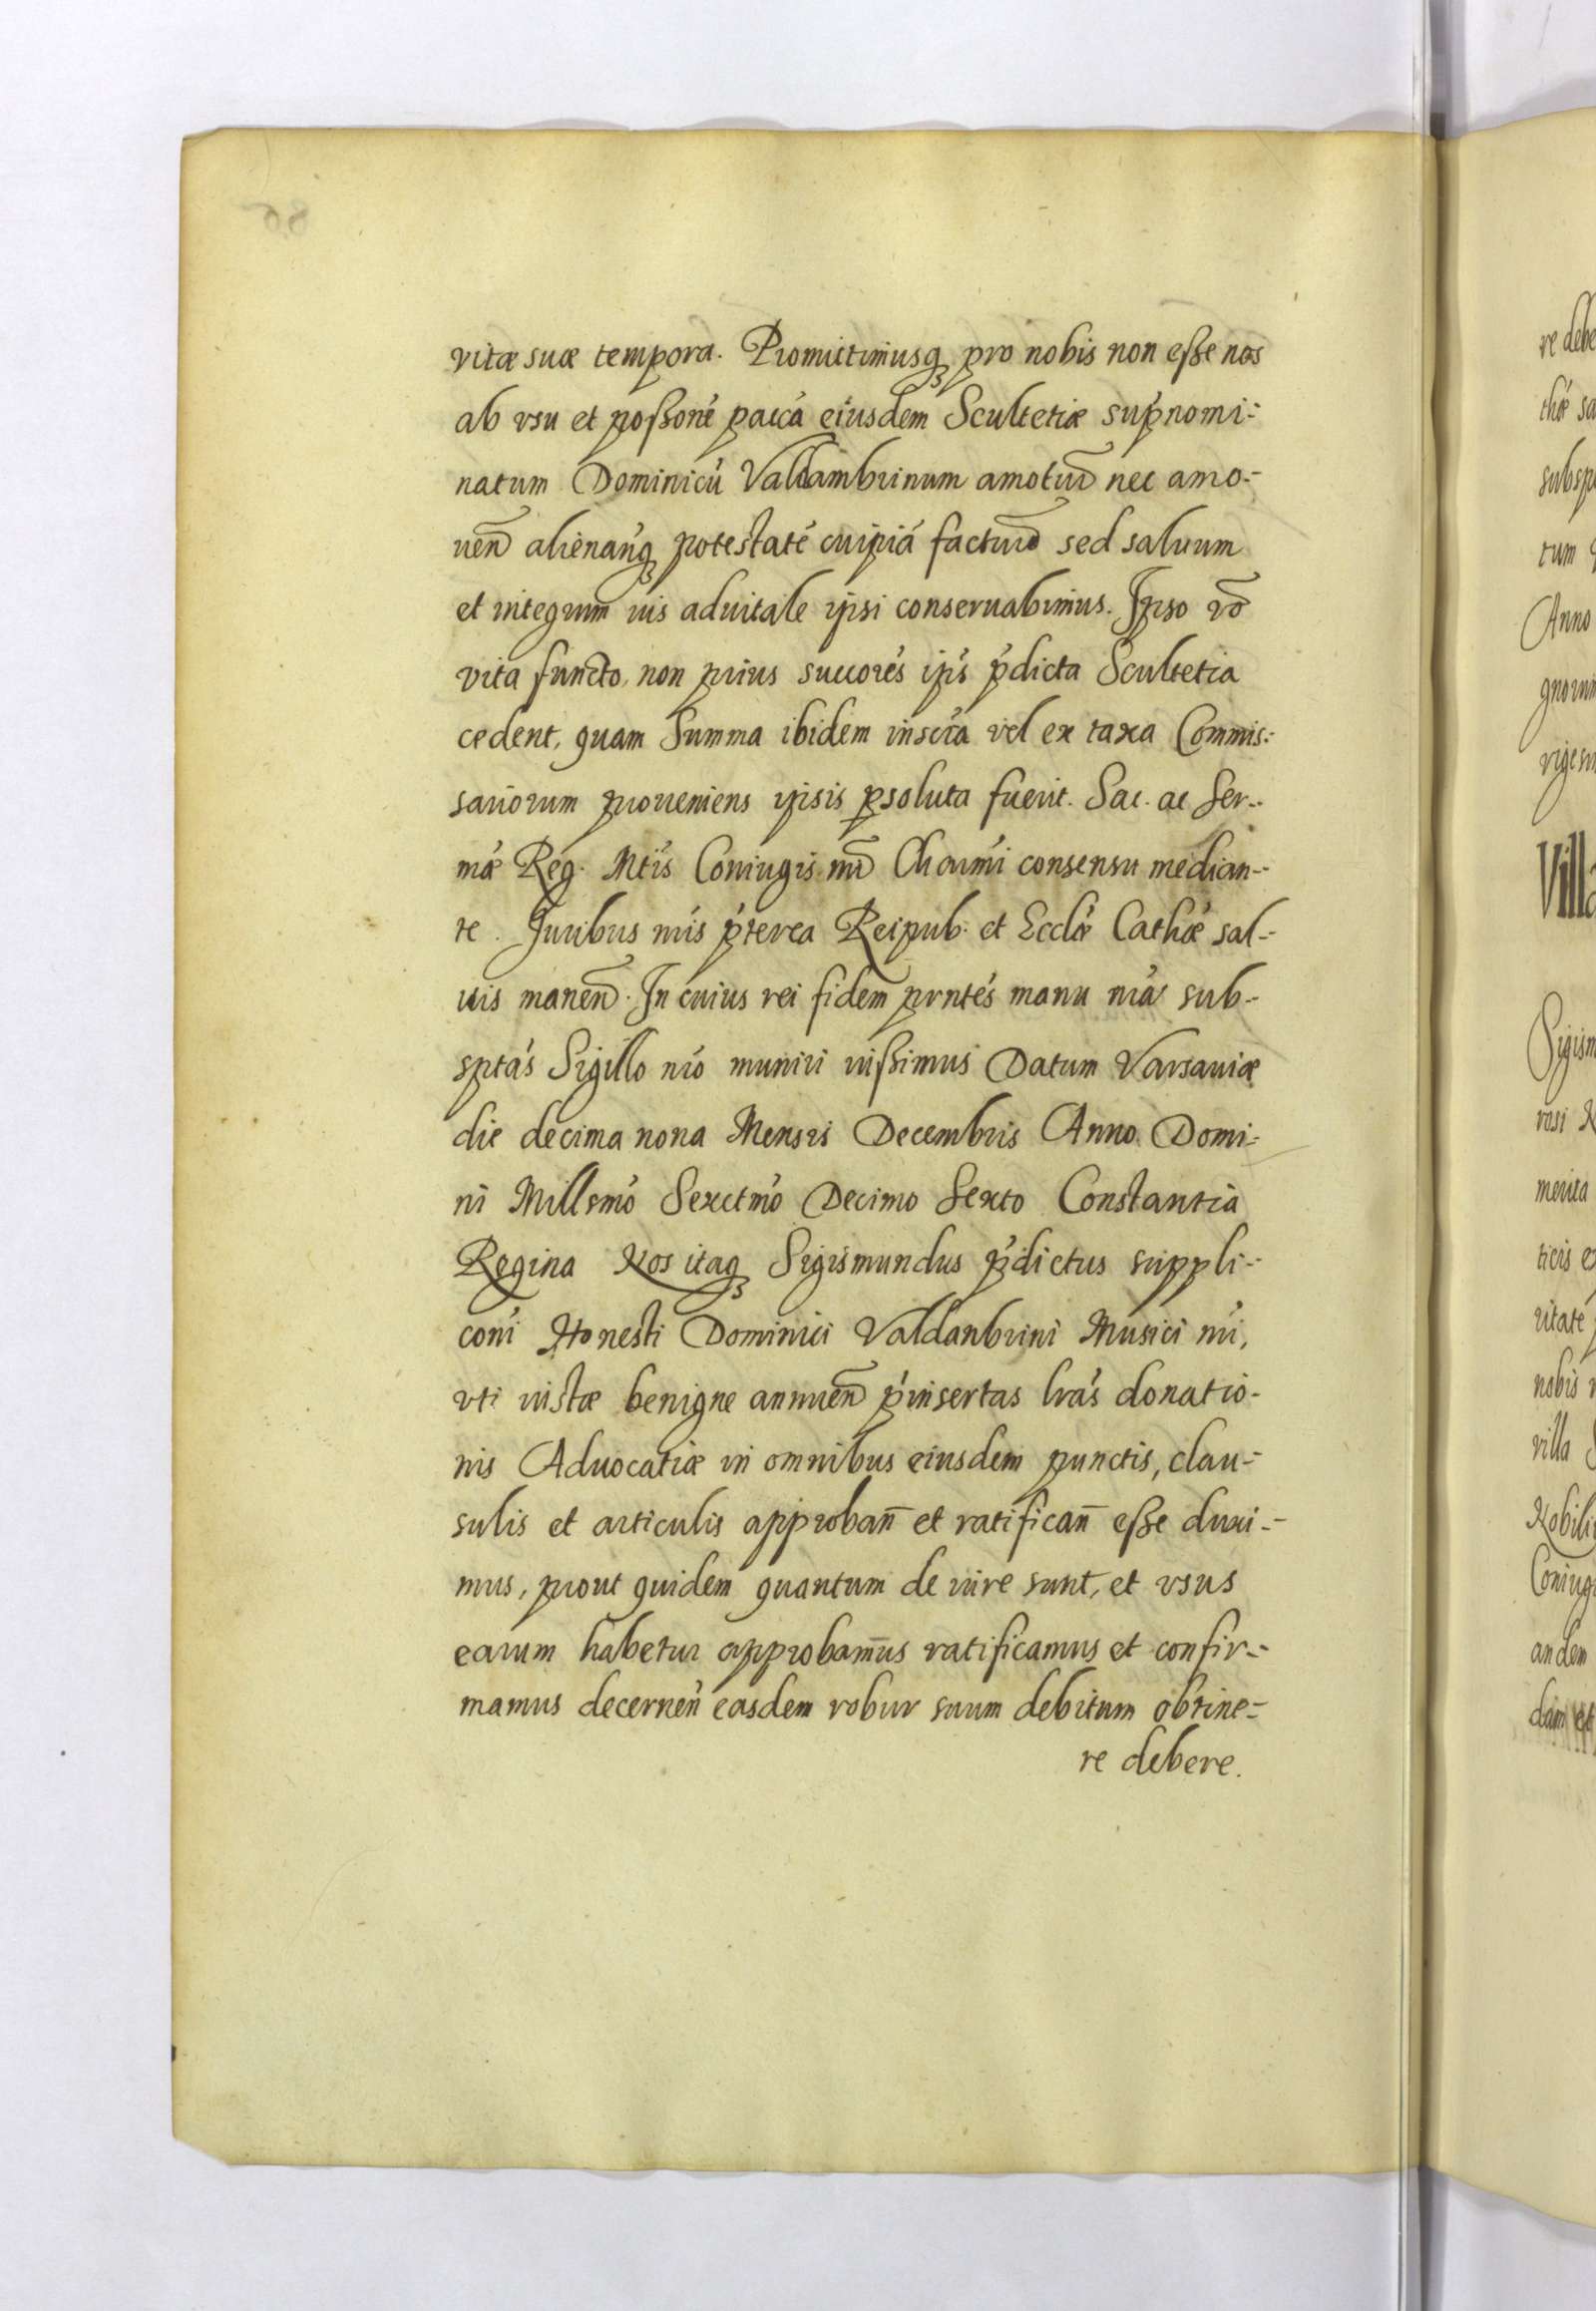 vitæ suæ tempora. Promittimusq₃ pro nobis non eſße nos
ab vsu et poſßoné pacca eiusdem Scultetiæ sup̓nomi:
natum Dominicú Valdambrinum amotuꝝ nec amo-
uen̄ alienanq₃ potestaté cuipiá factuꝝ sed saluum
et integrum ius aduitale ipsi conseruabimus. Ipso vō
vita functo, non prius succorés ipś p̓dicta Scultetia
cedent, quam Summa ibidem inscta vel ex taxa Commis:
sariorum proueniens ipsis ꝑsoluta fuerit. Sac. ac Ser-
mæ Reg. Mtis Coniugis nrī Charmi consensu median-
te. Iuribus nris p̓terea Reipub: et Ecclæ Cathæ sal-
uis manen̄. In cuius rei fidem prntés manu nrá sub-
sptás Sigillo nró muniri iuſßimus Datum Varsauiæ
die decima nona Mensis Decembris Anno Domi-
ni Millsmó Sexctmó Decimo Sexto Constantia
Regina Nos itaq₃ Sigismundus p̓dictus suppli-
coni Honesti Dominici Valdanbrini Musici nri,
vti iustæ benigne annuen̄ p̓insertas lrás donatio-
nis Aduocatiæ in omnibus eiusdem punctis, clau-
sulis et articulis approban̄ et ratifican̄ eſße duxi-
mus, prout quidem quantum de iure sunt, et vsus
earum habetur approbamus ratificamus et confir-
mamus decernen̄ easdem robur suum debitum obtine-
re debere.